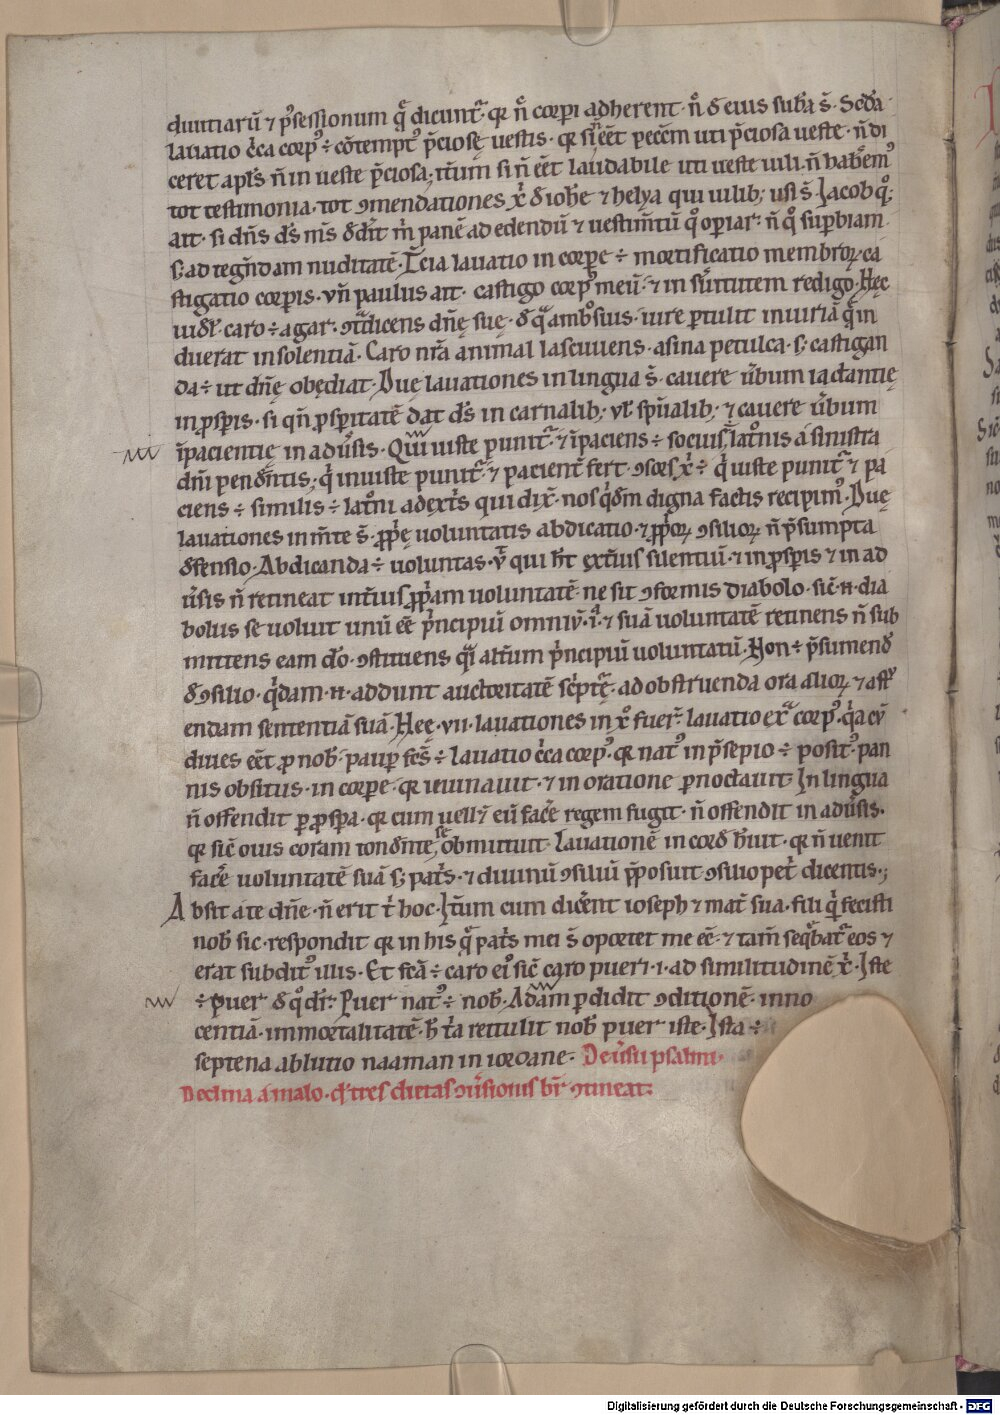 diuitiarū ⁊ p̄sessionum q̄ dicunt̃· qꝛ ñ corpi adherent· ñ ð eius sub̄a s̄· Scđa
lauatio c̄ca corpꝰ ÷ cōtempt᷒ p̄ciosę uestis· qꝛ si ēēt pecc̄m uti p̄ciosa ueste· ñ di
ceret apl̄s ñ in ueste p̄ciosa; it̄um si ñ ēēt laudabile uti ueste uili· ñ hab̄em᷒
tot testimonia· tot ꝯmendationes xp̄i ð ioħe ⁊ helya qui uilibꝫ usi s̄· Jacob qꝫ
ait· si dn̄s ds̄ m̄s ðdīt m̄ panē ad edendū ⁊ uestim̄tū qͦ opiar· ñ qͦ supbiam
sꝫ ad tegn̄dam nuditatē· T̄cia lauatio in corpe ÷ mortificatio membroꝝ· ca
stigatio corpis· vn̄ paulus ait· castigo corpꝰ meū· ⁊ in s̄uitutem redigo· Hęc
uidꝫ caro ÷ agar· ꝯtͣdicens dn̄ę suę· ð qͣ ambrosius· iure ptulit iniuriā q̄ in
duerat insolentiā· Caro nr̄a animal lasciuiens· asina petulca· sꝫ castigan
da ÷ ut dn̄ę obędiat· Duę lauationes in lingua s̄· cauere ūbum iactantię
in ꝓspis· si qn̄ ꝓspitatē dat ds̄ in carnalibꝫ ul̄ spūalibꝫ ⁊ cauere ūbum
īpacientię in adūsis· Qui iuste punit̃· ⁊ īpaciens ÷ socius lat̄onis a sinistra
dn̄i pendētis; qͥ iniuste punit̃ ⁊ pacient̄ fert· ꝯsors xp̄i ÷ qͥ iuste punit̃ ⁊ pa
ciens ÷ similis ÷ lat̄oni a dext̄s qui dix̄· nos qͥdm digna factis recipim᷒· Duę
lauationes in m̄te s̄· ꝓp̄ę uoluntatis abdicatio· ⁊ ꝓp̄oꝝ ꝯsilioꝝ ñ p̄sumpta
ðfensio· Abdicanda ÷ uoluntas· ut qui h̄t ext̄ius silentiū· ⁊ in ꝓspis ⁊ in ad
ūsis ñ retineat int̄ius ꝓp̄am uoluntatē· ne sit ꝯformis diabolo· sic̄ n̄ dia
bolus se uoluit unū ēē p̄ncipiū omniū· ita ⁊ suā uoluntatē retinens ñ sub
mittens eam dō· ꝯstituens qͣi alt̄um p̄ncipiū uoluntatū· Non ÷ p̄sumend̄
ð ꝯsilio· qͥdam n̄ addunt auctoritatē sc̄ptę· ad obstruenda ora alioꝝ ⁊ aff᷒
endam sententiā suā· Hęę vii· lauationes in xp̄o fuer̄· lauatio ex̄ corpꝰ· qͥa cū
diues ēēt ꝓ nob· paup fcs̄ ÷ lauatio c̄ca corpꝰ· qꝛ nat᷒ in p̄sepio ÷ posit᷒ pan
nis obsitus· in corpe· qꝛ ieiunauit· ⁊ in oratione pnoctauit· In lingua
ñ offendit p ꝓspa· qꝛ cum uellēt eū fac̄e regem fugit· ñ offendit in adūsis·
qꝛ sic̄ ouis coram tondēnte se obmittuit· Lauationē in cord habuit· qꝛ ñ uenit
fac̄e uoluntatē suā sꝫ pat̄s· ⁊ diuinū ꝯsiliū p̄posuit ꝯsilio pet̄ dicentis·;
Absit a te dn̄e· ñ erit t̄ hoc· Jt̄um cum dic̄ent ioseph ⁊ mat̄ sua· fili qͥd fecisti
nob sic· respondit qꝛ in his q̄ pat̄s mei s̄ oportet me eē· ⁊ tam̄ seq̄bat̃ eos ⁊
erat subdit᷒ illis· Et fcā ÷ caro ei᷒ sic̄ caro pueri· i· ad similitudinē xp̄i· Iste
÷ puer ð qͦ dr̄· Puer nat᷒ ÷ nob· Adam pdidit ꝯditionē· inno
centiā· immortalitatē· h̄ t̄a rettulit nob puer iste· Jsta ÷
septena ablutio naaman in iordane· De ūsu psalmi·
Declina a malo· qd̄ tres dietas ꝯūsionis br̄ ꝯtineat:
Digitalisierung gefördert durch die Deutsche Forschungsgemeinschaft - DFG